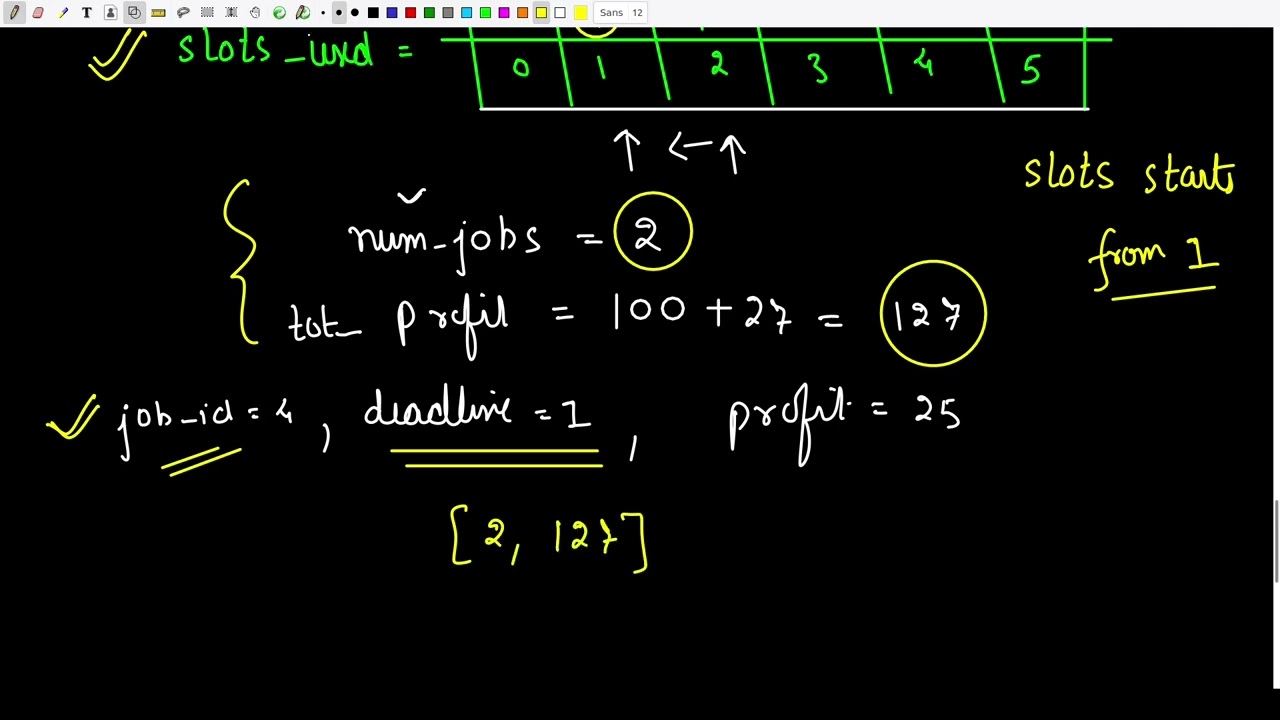 T Sans 12
slots_used =
0 1 2 3 4 5
slots starts
from 1
num_jobs = 2
tot_ profit = 100 + 27 = 127
job_id = 4, deadline = 1, profit = 25
[2, 127]